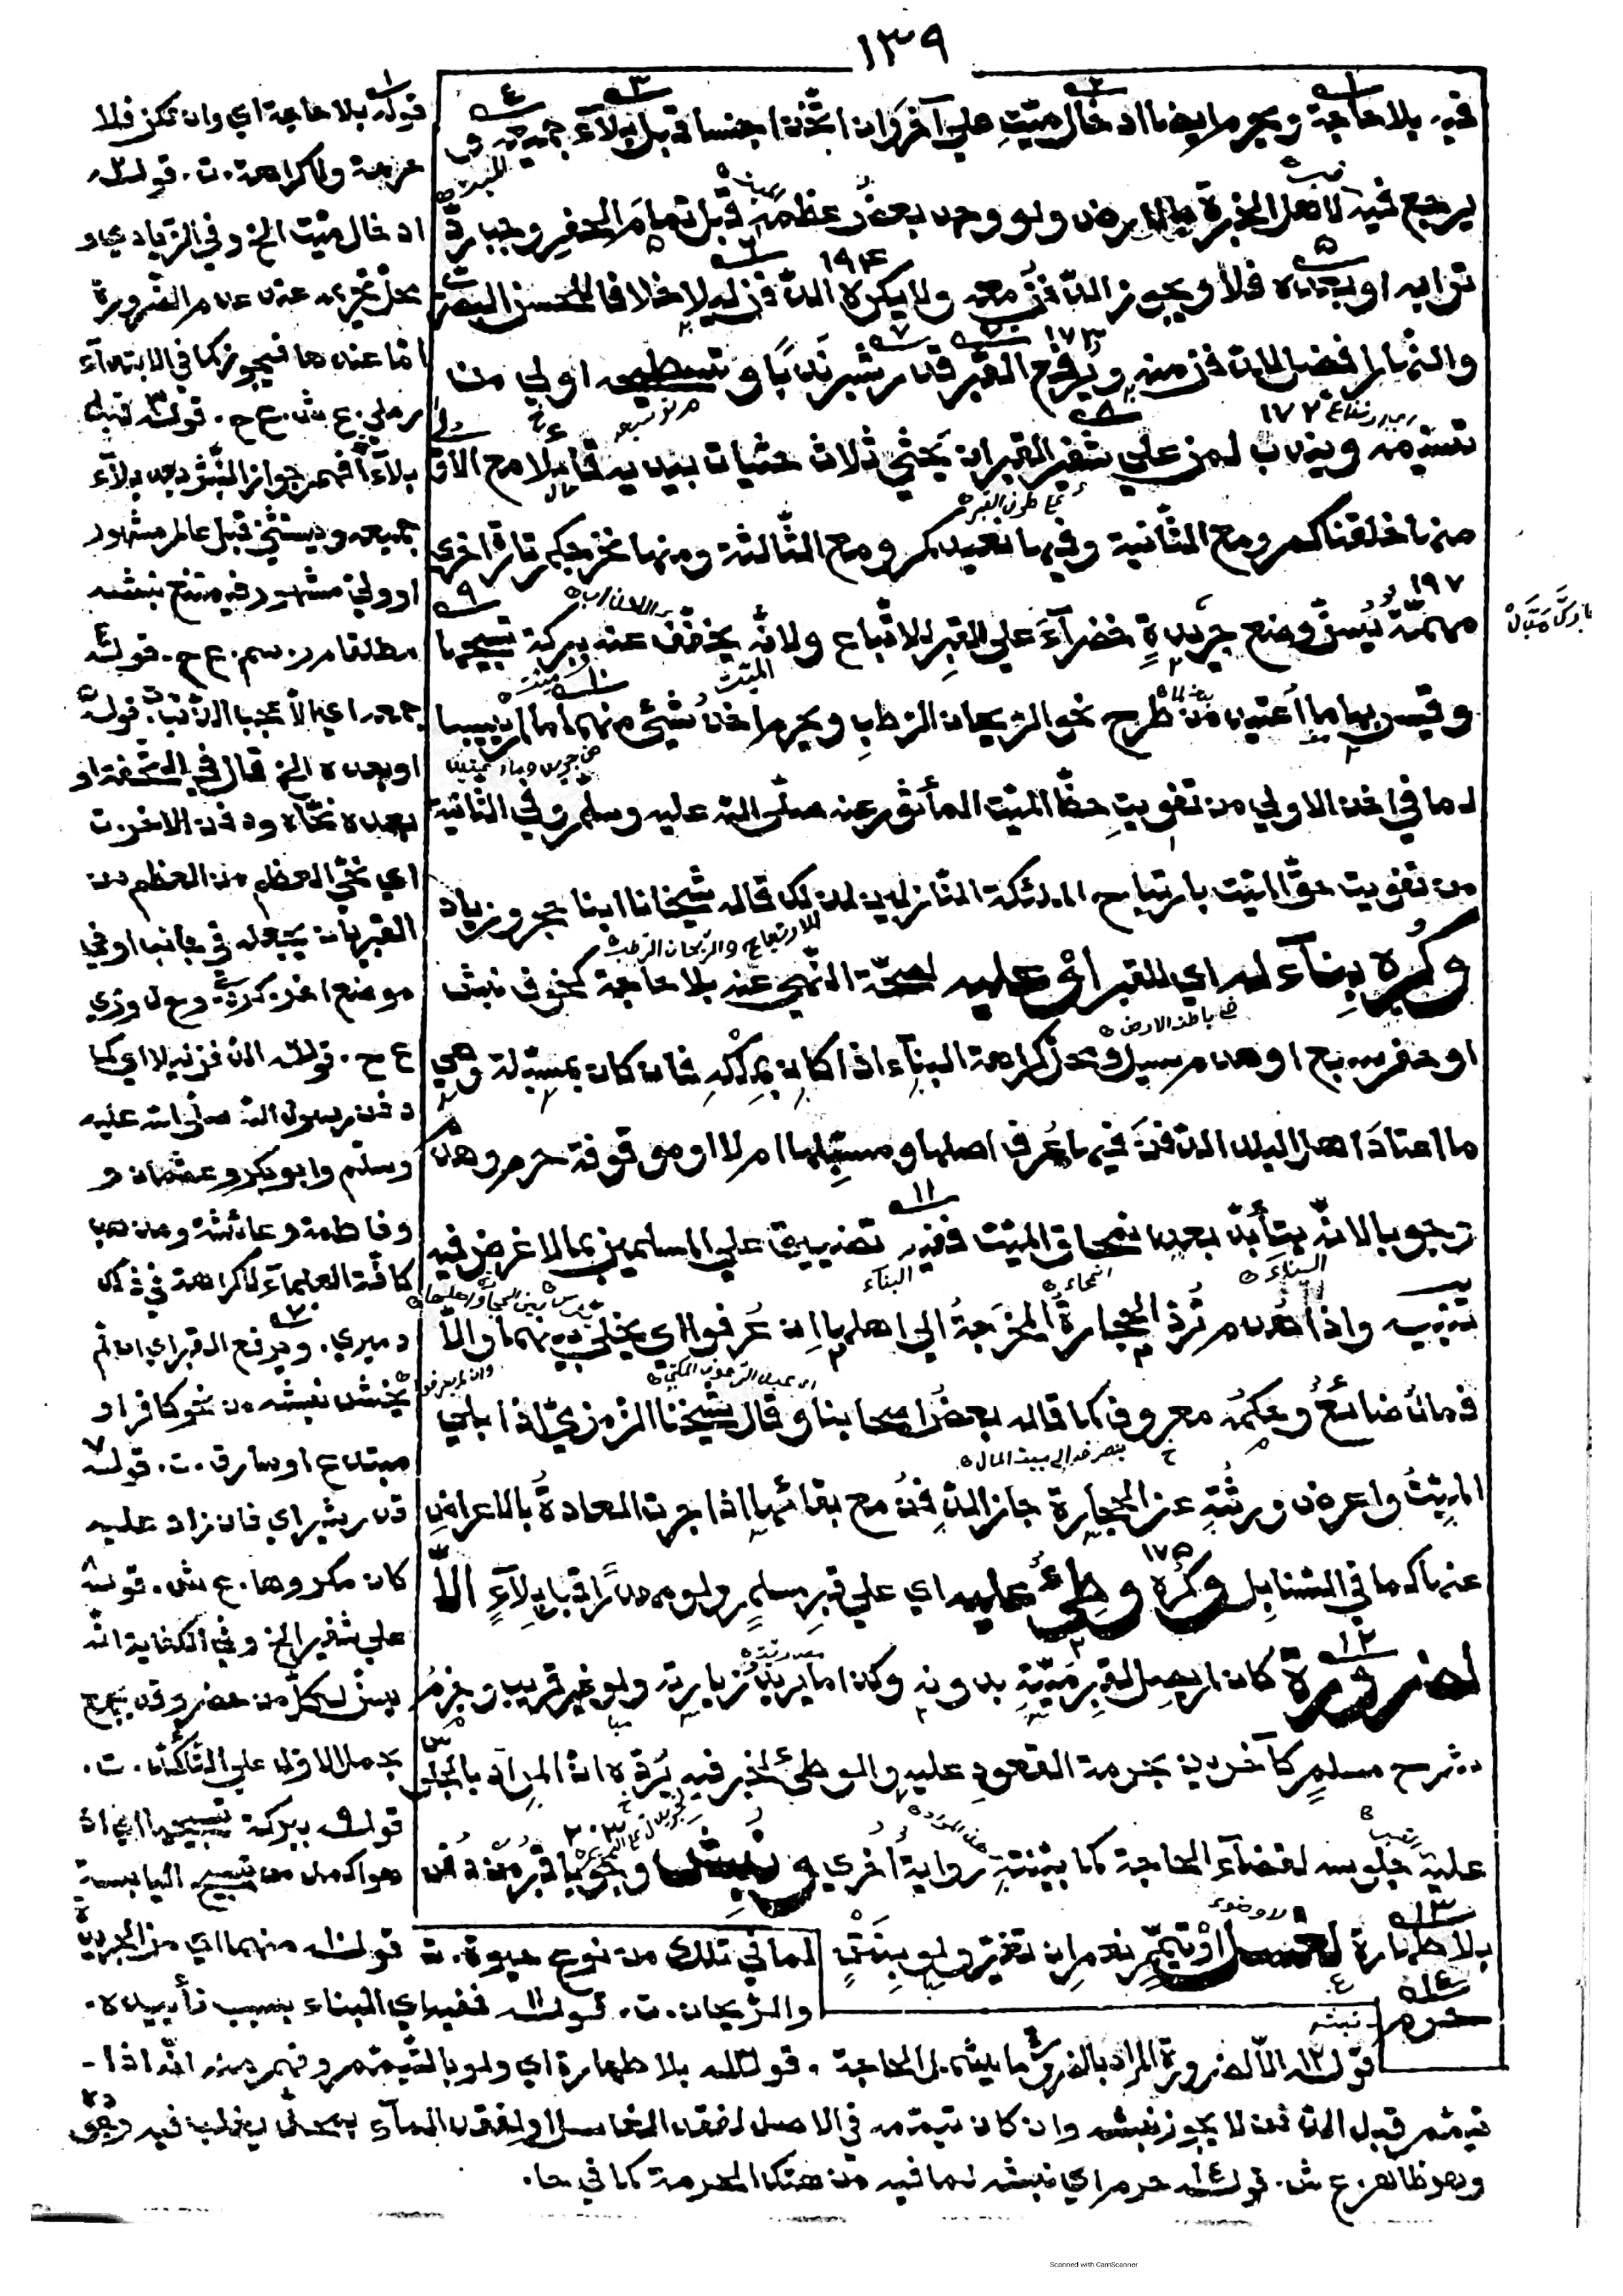 ١٣٩
فيه بلا حاجة ويحرم ايضا ادخال ميت على آخر وان اتّحدا جنسا قبل بلآء جميعه و
يرجع فيه لاهل الخبرة بالارض ولو وجد بعض عظمه قبل تمام الحفر وجب ردّ
ترابه او بعده فلا ويجوز الدّفن معه ولا يكره الدّفن ليلا خلافا للحسن البصري
والنهار افضل للدّفن منه ويُرفع القبر قدر شبر ندبًا وتسطيحه اولى من
تسنيمه ويندب لمن على شفير القبر ان يحثي ثلاث حثيات بيديه قائلا مع الاولى
منها خلقناكم ومع الثّانية وفيها نعيدكم ومع الثّالثة ومنها نخرجكم تارة اخرى
مهمّة يُسنّ وضع جريدةٍ خضرآءَ على القبر للاتّباع ولانّه يخفّف عنه ببركة تسبيحها
وقيس بها ما اعتيد من طرح نحو الريحان الرّطب ويحرم اخذُ شيء منهما ما لم ييبسا
لما في اخذ الاولى من تفويتِ حظّ الميّت المأثور عنه صلّى الله عليه وسلم وفي الثانية
من تفويت حقّ الميّت بارتياح الملائكة النّازلين لذلك قاله شيخانا ابنا حجر وزياد
وكُرِه بِنآء له اي القبر او عليه لصحّة النّهي عنه بلا حاجة كخوف نبش
او حفر سبع او هدم سيل ومحلّ كراهة البنآء اذا كان بملكه فان كان بمسبّلة وهي
ما اعتادَ اهل البلد الدّفنَ فيها عُرف اصلها ومسبِّلها ام لا او موقوفة حرم وهُدم
وجوبا لانّه يتأبّد بعد انمحاق الميّت ففيه تضييق على المسلمين بما لا غرض فيه
تنبيه واذا هُدم تُردّ الحجارةُ المخرَجةُ الى اهلها ان عُرفوا او يخلّى بينهما والّا
فمالٌ ضائعٌ وحكمُه معروف كما قاله بعضُ اصحابنا وقال شيخنا الزمزميّ اذا بلي
الميّتُ واعرض ورثتُه عن الحجارة جاز الدّفنُ مع بقائها اذا جرت العادةُ بالاعراضِ
عنها كما في السّنابل وكُرِه وطئٌ عليه اي على قبرِ مسلمٍ ولو مهدرًا قبل بلآءٍ الّا
لضرورة كان لم يصل لقبرِ ميّتِه بدونه وكذا ما يريد زيارته ولو غير قريب وجزمُ
شرح مسلمٍ كآخرين بحرمة القعودِ عليه والوطئ لخبر فيه يُردّه انّ المراد بالجلوس
عليه جلوسه لقضآء الحاجة كما بيّنته رواية أخرى ونُبِش وجوبا قبرُ من دُفن
بلا طهارة لغسل او تيمّم نعم ان تغيّر ولو بنَتْنٍ
حرم
قوله بلا حاجة اي وان تكن فلا
حرمة ولا كراهة. ت. قوله
ادخال ميت الخ وفي الزيادي و
محل تحريمه عند عدم الضّرورة
امّا عندها فيجوز كما في الابتدآء
رملي. ع ش. ع ح. قوله قبل
بلآء افهم جواز النّبش بعد بلآء
جميعه ويستثنى قبل عالم مشهور
او ولي مشهور فيمتنع نبشه
مطلقا م ر. سم. ع ح. قوله
او بعده الخ قال في التّحفة او
بعده نحّاه ودفن الآخر. ت
اي نحّى العظم من العظم من
القبر بان يجعله في جانب او في
موضع آخر
ع ح. قوله الدّفن ليلا اي كما
دفن رسول الله صلّى الله عليه
وسلم وابو بكر وعثمان و
وفاطمة وعائشة ومذهب
كافّة العلمآء لا كراهة في ذلك
دميري. ويرفع القبر اي ان لم
يخش نبشه من نحو كافر او
مبتدع او سارق. ت. قوله
قدر شبر اي فان زاد عليه
كان مكروها. ع ش. قوله
على شفير الخ وفي الكفاية انّه
يسنّ لكلّ من حضر وقد يجمع
بحمل الاوّل على التّأكّد. ت.
قوله ببركة تسبيحها اي اذ
هو اكمل من تسبيح اليابسة
لما في تلك من نوع حيوة. ت قوله منهما اي من الجريدة
والرّيحان. ت. قوله ففيه اي البناء بسبب تأبيده.
قوله الّا لضرورة المراد بالضرورة ما يشمل الحاجة. قوله بلا طهارة اي ولو بالتّيمّم وفهم منه انّه اذا
تيمّم قبل الدّفن لا يجوز نبشه وان كان تيمّمه في الاصل لفقد الغاسل او لفقد المآء بمحلّ يغلب فيه وجوده
وهو ظاهر. ع ش. قوله حرم اي نبشه لما فيه من هتك الحرمة كما في حا.
Scanned with CamScanner